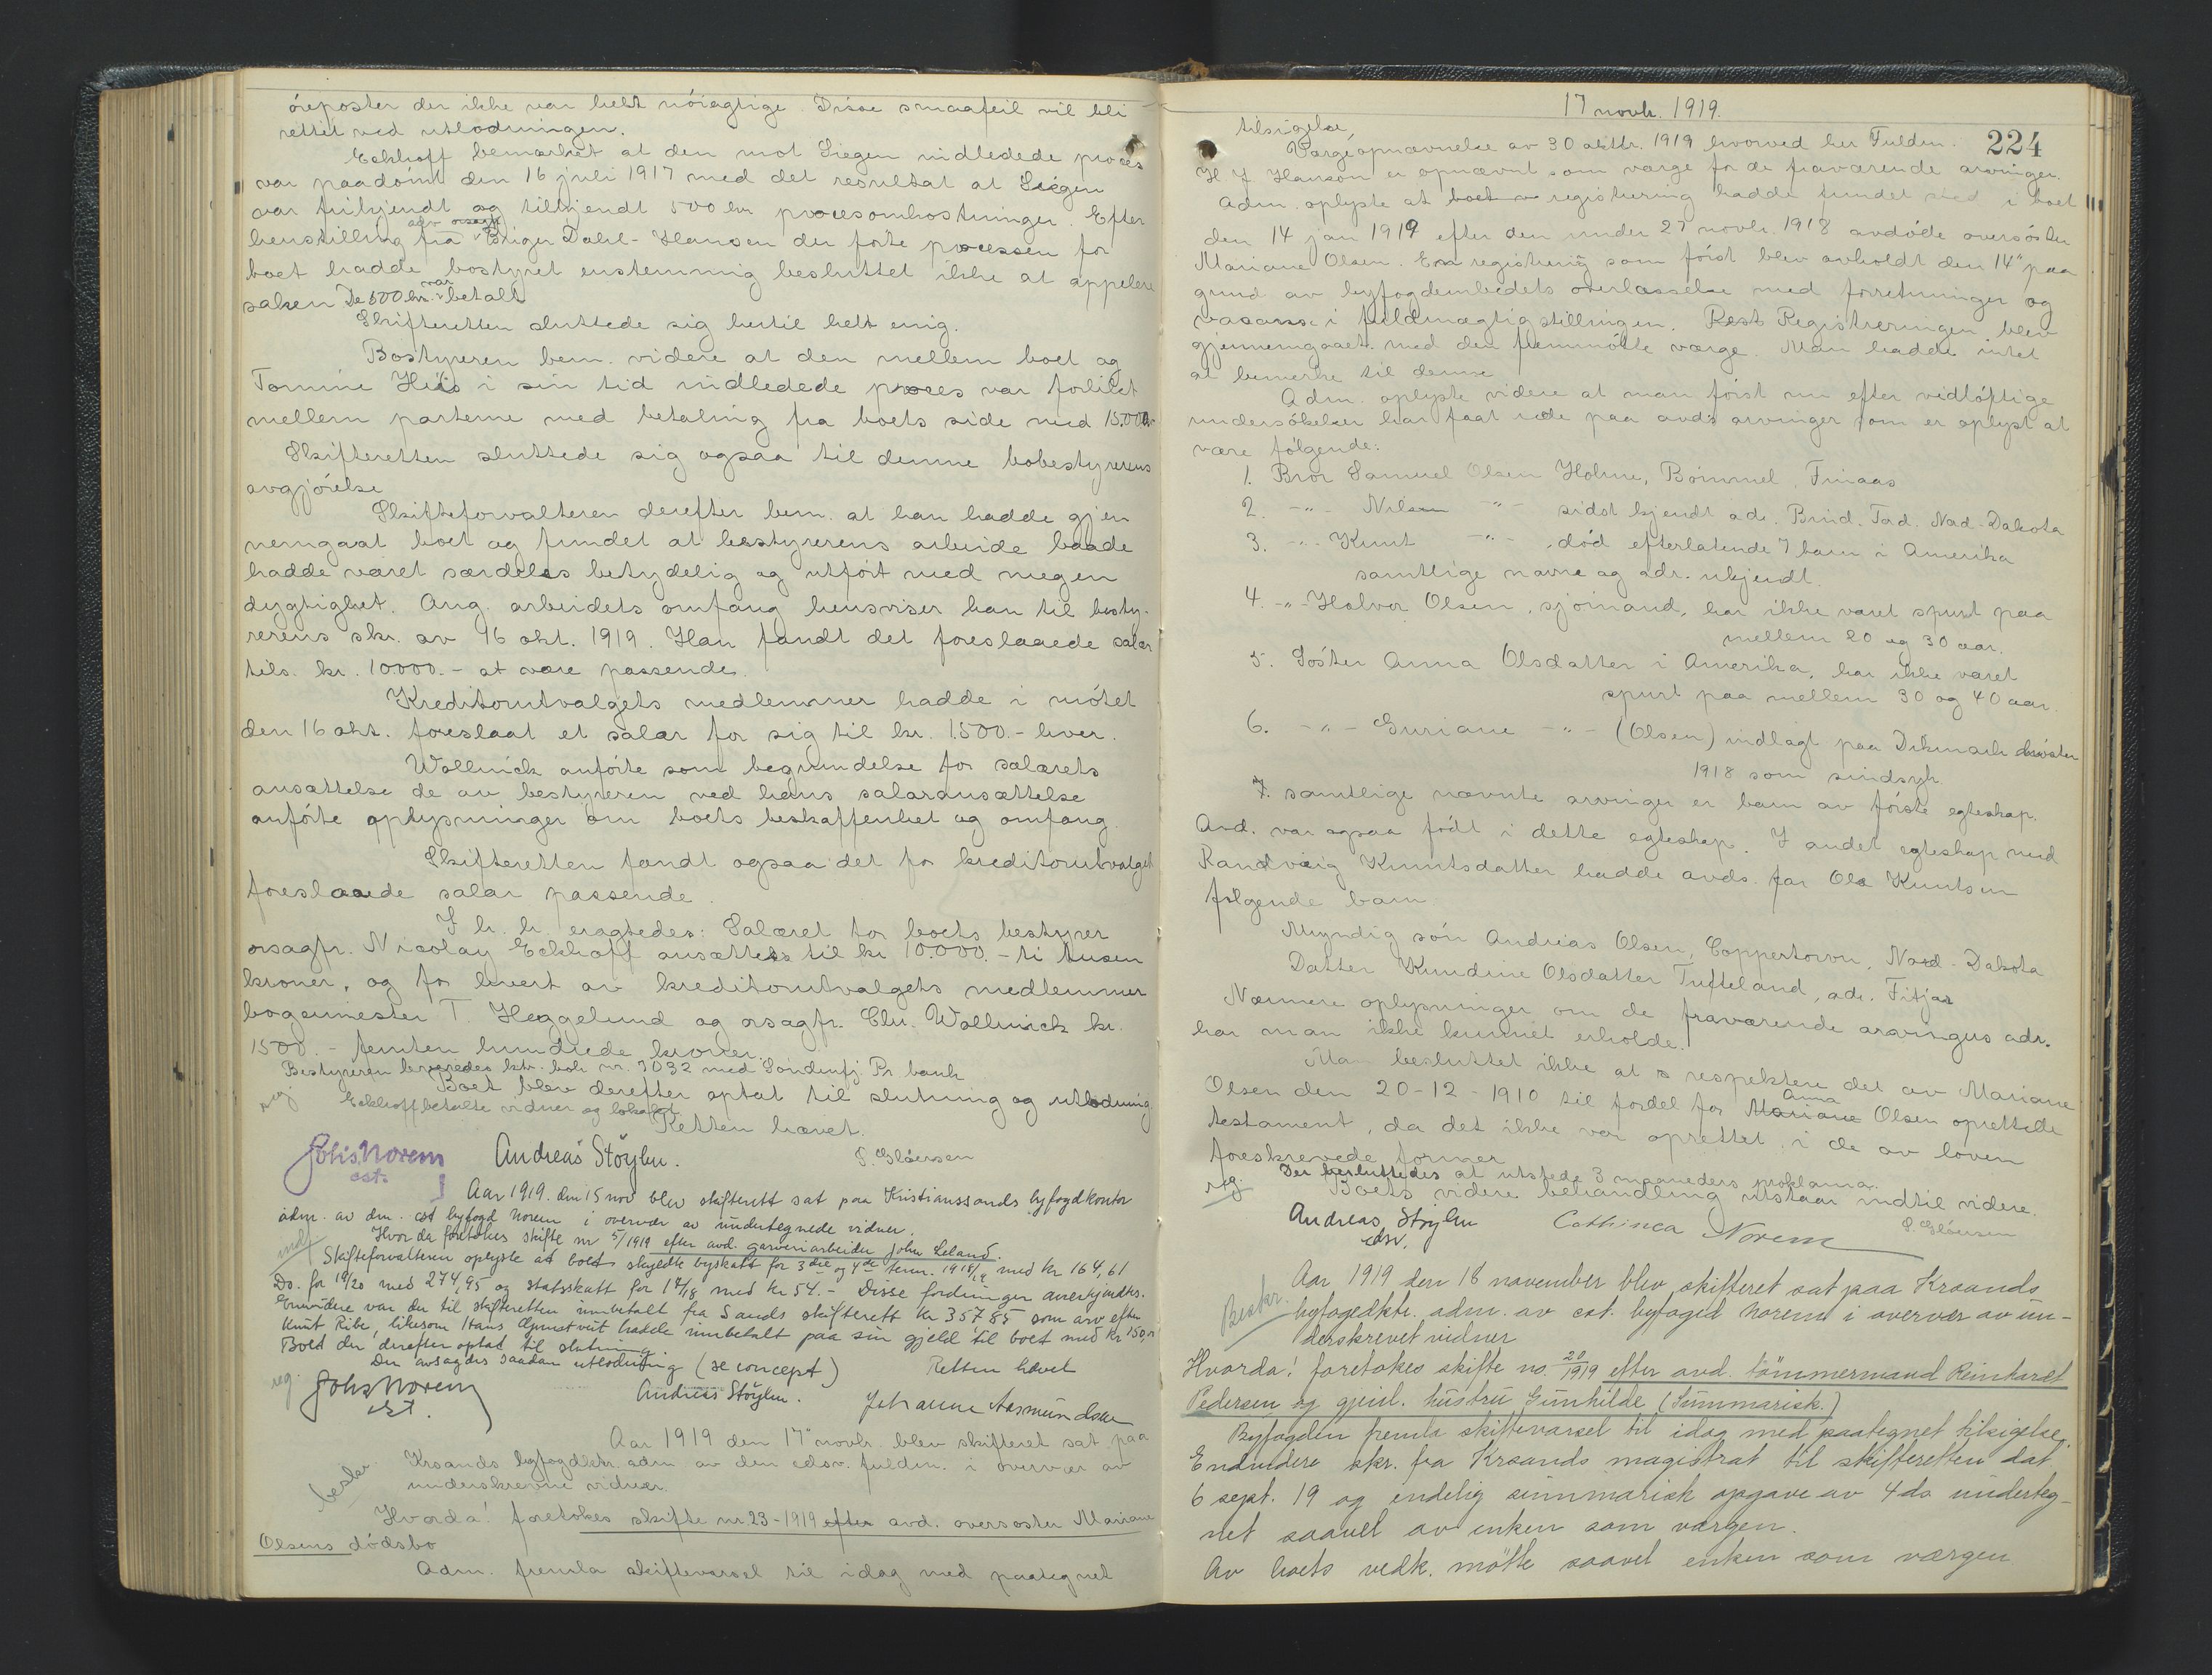 øreposter der ikke var helt nøiagtige. Disse smaafeil vil bli
rettet ved utlodningen.
Eckhoff bemærket at den mot Siegen indledede proces
var paadømt den 16 juli 1917 med det resultat at Siegen
var frikjendt og tilkjendt 500 kr procesomkostninger. Efter
henstilling fra adv. orsagf. Birger Dahl-Hansen der førte processen for
boet hadde bostyret enstemmig besluttet ikke at appelere
saken De 500 kr. var betalt
Skifteretten sluttede sig hertil helt enig.
Bostyreren bem. videre at den mellem boet og
Tomine Hus i sin tid indledede proces var forliket
mellem parterne med betaling fra boets side med 15.000
Skifteretten sluttede sig ogsaa til denne bobestyrerens
avgjørelse
Skifteforvalteren derefter bem. at han hadde gjen
nemgaat boet og fundet at bestyrerens arbeide baade
hadde været særdeles betydelig og utført med megen
dygtighet. Ang. arbeidets omfang henviser han til besty-
rerens skr. av 16 okt. 1919. Han fandt det foreslaaede salær
tils. kr. 10000.- at være passende.
Kreditorutvalgets medlemmer hadde i møtet
den 16 okt. foreslaat et salær for sig til kr. 1.500.- hver.
Wallnick anførte som begrundelse for salærets
ansættelse de av bestyreren ved hans salæransættelse
anførte oplysninger om boets beskaffenhet og omfang.
Skifteretten fandt ogsaa det for kreditorutvalget
foreslaaede salær passende.
I h. h. eragtedes: Salæret for boets bestyrer
orsagfr. Nicolay Eckhoff ansættes til kr 10.000.- ti tusen
kroner, og for hvert av kreditorutvalgets medlemmer
bagermester T. Heggelund og orsagfr. Chr. Wallnick kr.
1500.- femten hundrede kroner.
Bestyreren leveredes ktr. bok nr. 3032 med Søndenfj. Pr. bank
Boet blev derefter optat til slutning og utlodning.
Eckhoff betalte vidner og lokalet.
Retten hævet.
Johs. Norem
cst.
Andreas Støylen.
S. Gløersen
Aar 1919. den 15 nov blev skifterett sat paa Kristianssands byfogdkontor
adm. av den cst byfogd Norem i overvær av undertegnede vidner.
Hvor da foretokes skifte nr 5/1919 efter avd. garveriarbeider John Leland.
Skifteforvalteren oplyste at boet skyldte byskatt for 3die og 4de term. 1918/19 med kr 164,61
Do. for 19/20 med 274,95 og statsskatt for 17/18 med kr 54.- Disse fordringer anerkjendtes.
Enndvidere var der til skifteretten innbetalt fra Sands skifterett kr 357 85 som arv efter
Knut Ribe, likesom Hans hadde innbetalt paa sin gjeld til boet med kr 150,-
Boet der derefter optat til slutning.
Der avsagdes saadan utlodning (se concept)
Retten hævet
reg.
Johs Norem
cst.
Andreas Støylen.
Johanne Aasmundsen
Aar 1919 den 17" novbr. blev skifteret sat paa
Krsands byfogdktr. adm av den edsv. fuldm. i overvær av
underskrevne vidner.
Hvorda! foretokes skifte nr. 23-1919 efter avd. oversøster Mariane
Olsens dødsbo
Adm. fremla skiftevarsel til idag med paategnet
17 novbr. 1919.
224
tilsigelse,
Værgeopnævnelse av 30 oktbr. 1919 hvorved hr Fuldm.
H J Hanson er opnævnt som værge for de fraværende arvinger.
Adm. oplyste at boet registrering hadde fundet sted i boet
den 14 jan 1919 efter den under 27 novbr. 1918 avdøde oversøster
Mariane Olsen. En registrering som først blev avholdt den 14" paa
grund av byfogdembedets overlæsselse med forretninger og
vacanse i fuldmægtigstillingen. Registreringen blev
gjennemgaaet med den fremmøtte værge. Man hadde intet
at bemerke til denne
Adm. oplyste videre at man først nu efter vidtløftige
undersøkelser har faat rede paa avd's arvinger som er oplyst at
være følgende:
1. Bror Samuel Olsen Holme, Bømmel, Finaas
2. -"- Nilsen -"- sidst kjendt adr. Brind. Tad. Nad-Dakota
3. -"- Knut -"- , død efterlatende 7 barn i Amerika
samtlige navne og adr. ukjendt.
4. -"- Halvor Olsen, sjømand, har ikke været spurt paa
mellem 20 og 30 aar.
5. Søster Anna Olsdatter i Amerika, har ikke været
spurt paa mellem 30 og 40 aar.
6. -"- Guriane -"- (Olsen) indlagt paa Dikmark
1918 som sindsyk.
7. samtlige nævnte arvinger er barn av første egteskap.
Avd. var ogsaa født i dette egteskap. I andet egteskap med
Randveig Knutsdatter hadde avds. far Ola Knutsen
følgende barn
Myndig søn Andreas Olsen, Coppertown, Nord-Dakota
Datter Kundine Olsdatter Tufteland, adr. Fitjar
Nærmere oplysninger om de fraværende arvingers adr.
har man ikke kunnet erholde.
Man besluttet ikke at respektere det av Mariane
Olsen den 20-12-1910 til fordel for Mariane Anna Olsen oprettede
testament, da det ikke var oprettet i de av loven
foreskrevede former
Der besluttedes at utstede 3 maaneders proklama.
reg.
Boets videre behandling utstaar indtil videre.
Andreas Støylen
edsv.
Cathinca Norem
S. Gløersen
Beskr.
Aar 1919 den 18 november blev skifteret sat paa Krsands
byfogedktr. adm. av cst. byfoged Norem i overvær av un-
derskrevet vidner
Hvorda! foretokes skifte no. 20/1919 efter avd. tømmermand Reinhardt
Pedersen og gjenl. hustru Gunhilde (Summarisk.)
Byfogden fremla skiftevarsel til idag med paategnet tilsigelse.
Endvidere skr. fra Krsands magistrat til skifteretten dat.
6 sept. 19 og endelig summarisk opgave av 4 ds underteg-
net saavel av enken som værgen.
Av boets vedk. møtte saavel enken som værgen